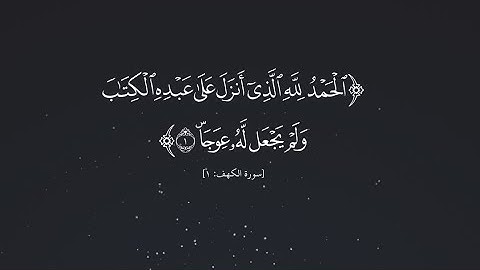 ﴿ٱلْحَمْدُ لِلَّهِ ٱلَّذِىٓ أَنزَلَ عَلَىٰ عَبْدِهِ ٱلْكِتَٰبَ
وَلَمْ يَجْعَل لَّهُۥ عِوَجَاۜ ١﴾
[سورة الكهف: ١]